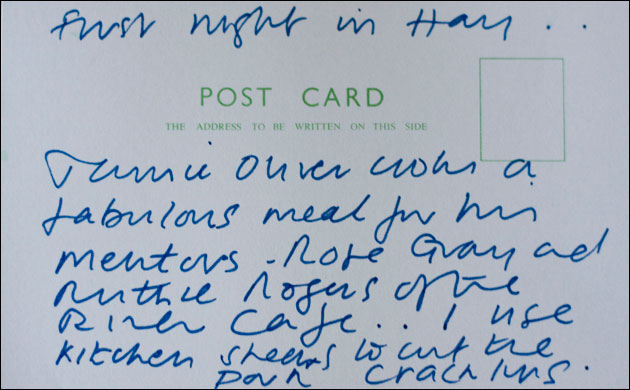 first night in Hay . .
POST CARD
THE ADDRESS TO BE WRITTEN ON THIS SIDE
Jamie Oliver cooks a
fabulous meal for his
mentors - Rose Gray and
Ruthie Rogers of the
River Cafe . . I use
kitchen shears to cut the
pork crackling.